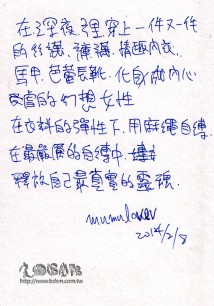 在深夜裡穿上一件又一件
的絲襪、褲襪、情趣內衣、
馬甲、芭蕾長靴、化身成內心
的幻想女性
在衣料的彈性下、用麻繩自縛
在最嚴厲的自縛中、
釋放自己最真實的靈魂.
mumulover
2014/2/8
www.bdsm.com.tw